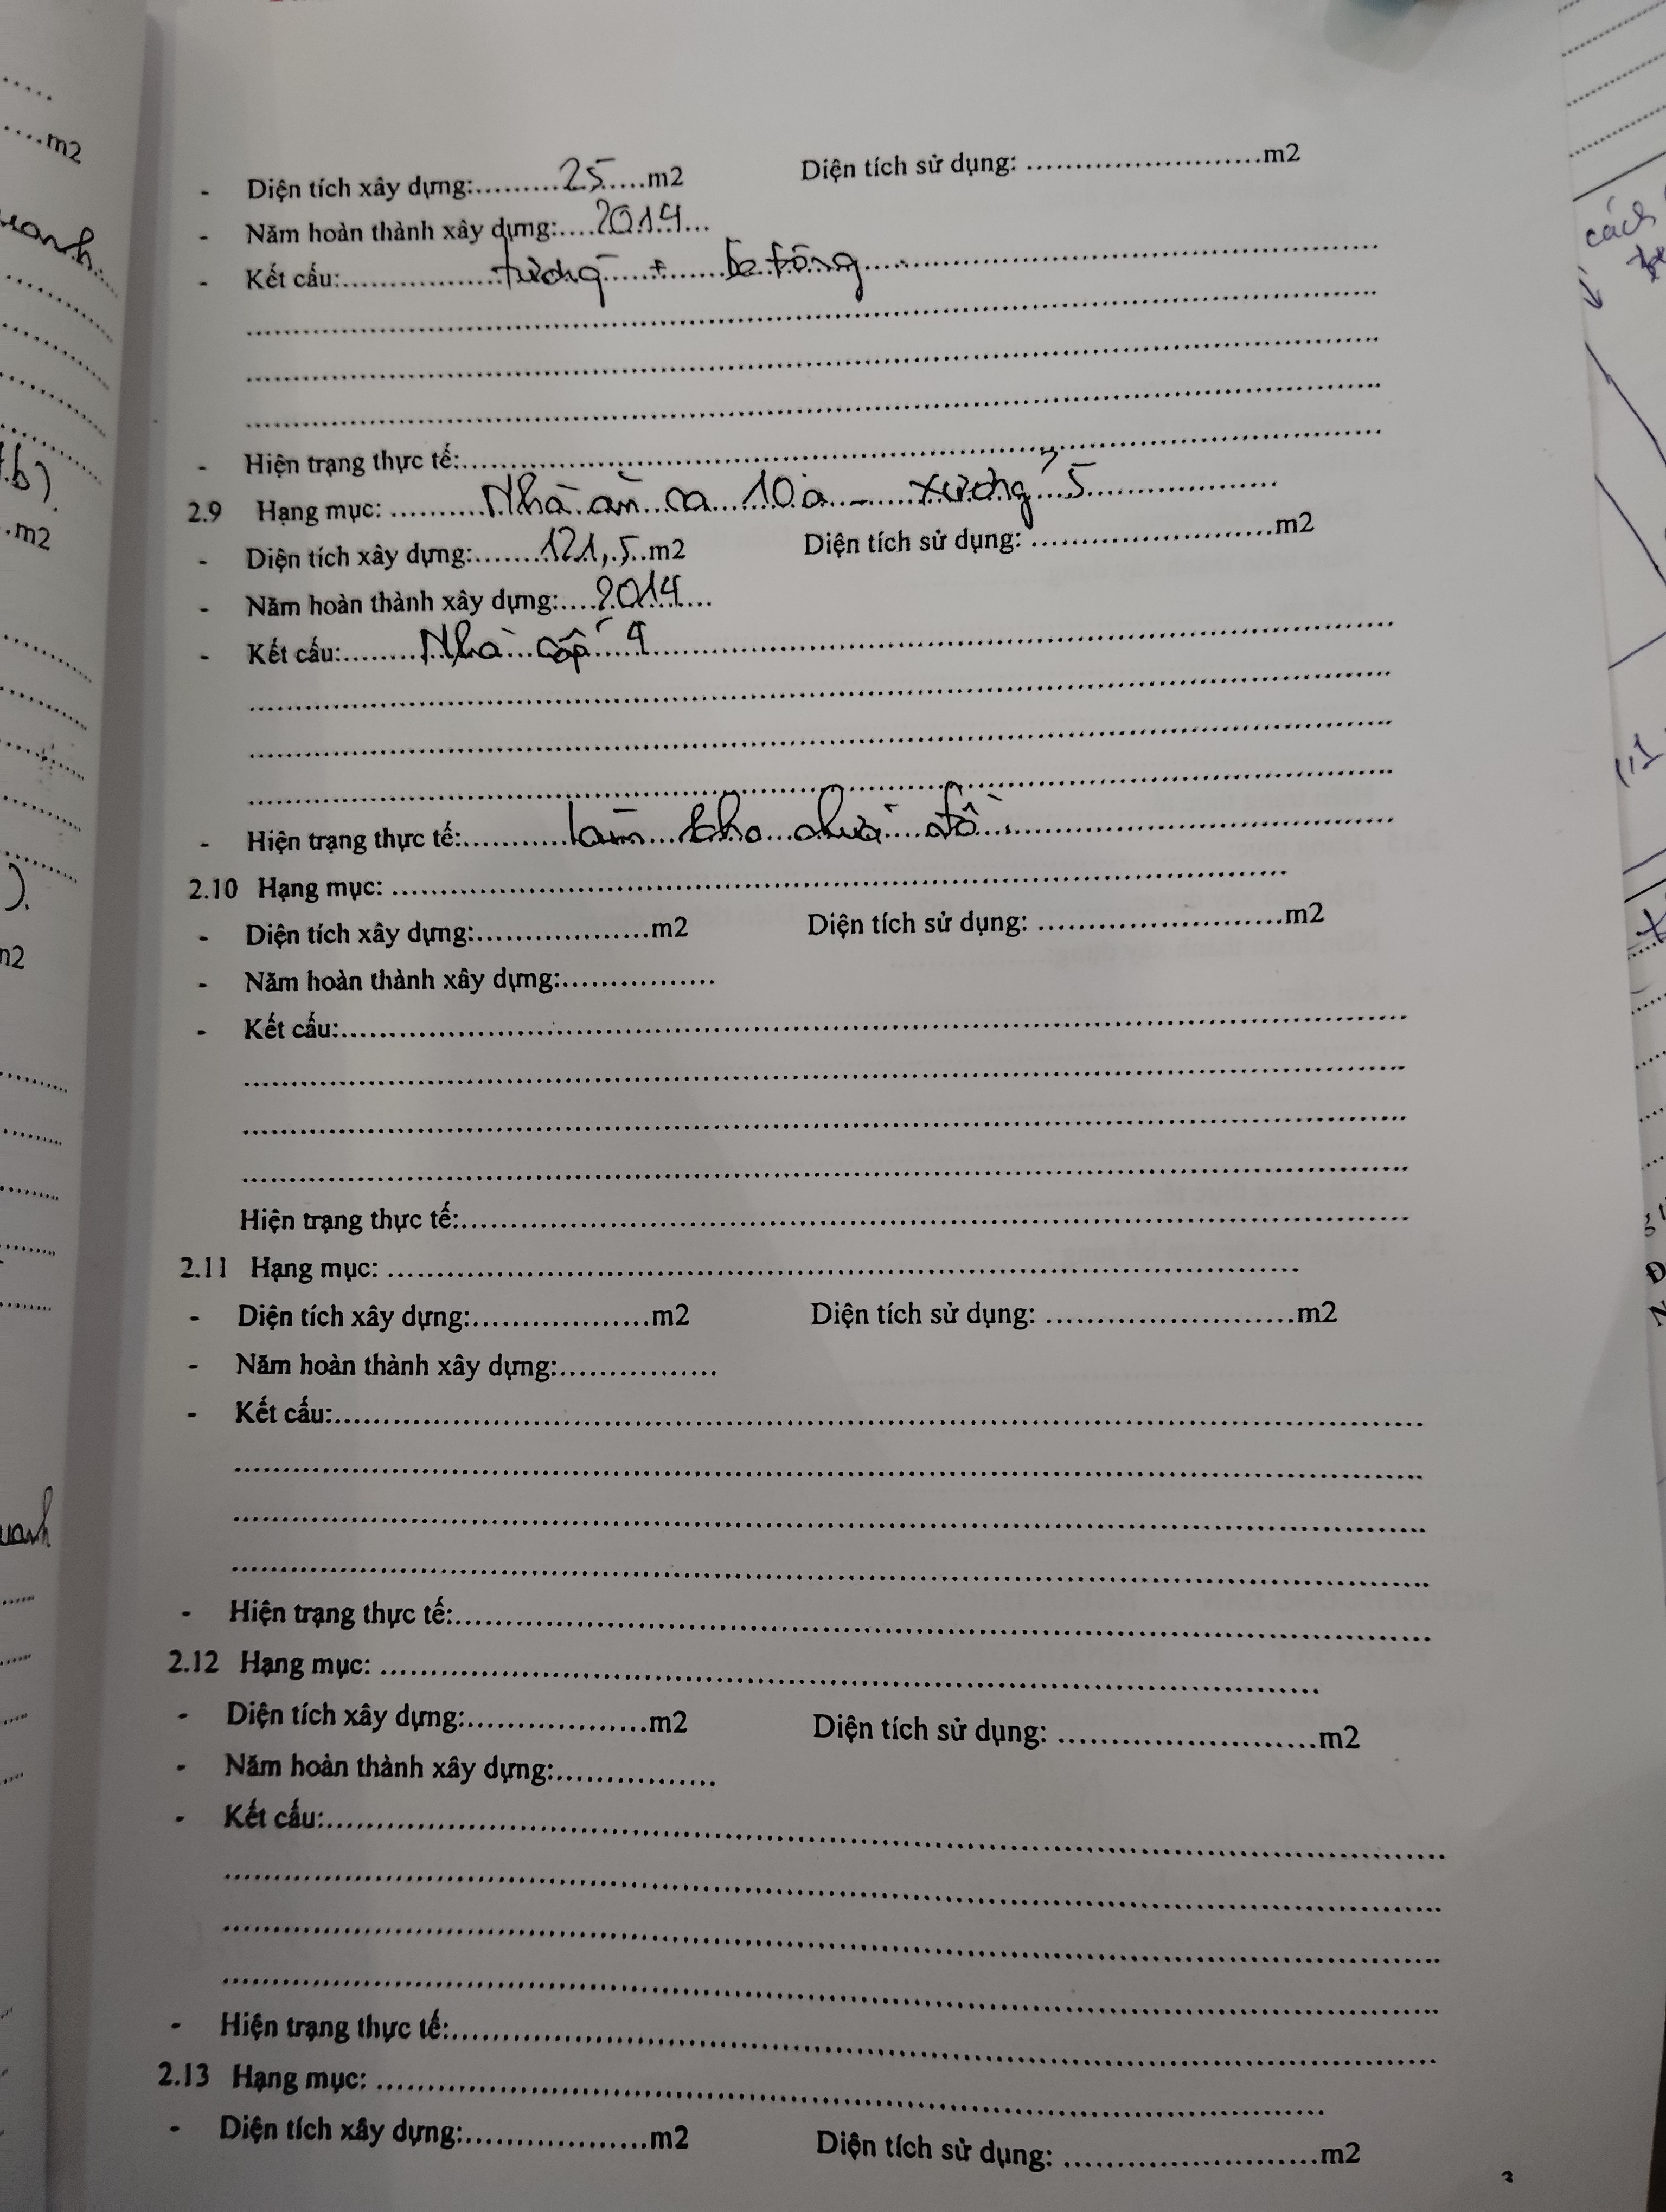 - Diện tích xây dựng:.........25.....m2 Diện tích sử dụng: .........................m2
- Năm hoàn thành xây dựng:....2014...
- Kết cấu:.................tường + bê tông..........................
- Hiện trạng thực tế:..........................
2.9 Hạng mục: ..........Nhà ăn ca 10a - xưởng 5....................
- Diện tích xây dựng:.......121,5..m2 Diện tích sử dụng: .........................m2
- Năm hoàn thành xây dựng:....2014...
- Kết cấu:........Nhà cấp 4..........................
- Hiện trạng thực tế:...........làm kho chứa đồ..........................
2.10 Hạng mục: ..........................
- Diện tích xây dựng:...................m2 Diện tích sử dụng: .........................m2
- Năm hoàn thành xây dựng:................
- Kết cấu:..........................
Hiện trạng thực tế:..........................
2.11 Hạng mục: ..........................
- Diện tích xây dựng:...................m2 Diện tích sử dụng: .........................m2
- Năm hoàn thành xây dựng:................
- Kết cấu:..........................
- Hiện trạng thực tế:..........................
2.12 Hạng mục: ..........................
- Diện tích xây dựng:...................m2 Diện tích sử dụng: .........................m2
- Năm hoàn thành xây dựng:................
- Kết cấu:..........................
- Hiện trạng thực tế:..........................
2.13 Hạng mục: ..........................
- Diện tích xây dựng:...................m2 Diện tích sử dụng: .........................m2
3
m2
m2
cách